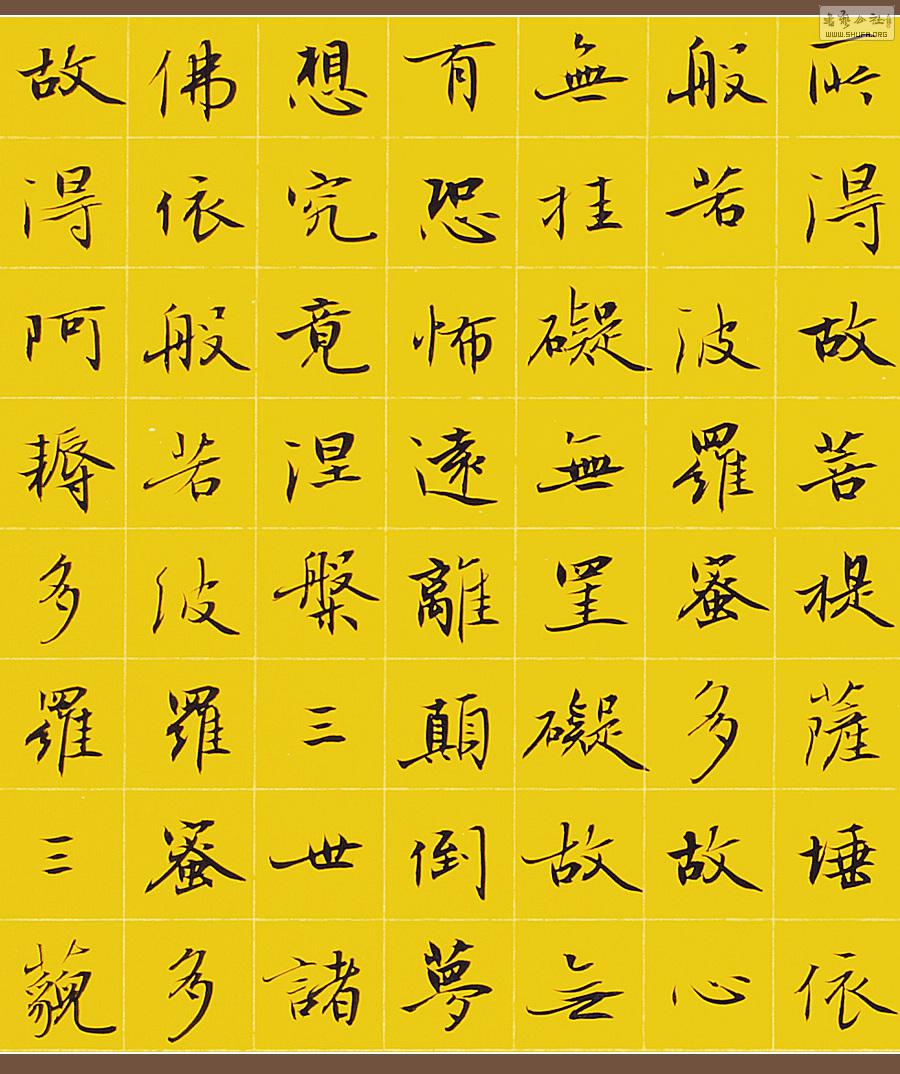 所得故菩提薩埵依
般若波羅蜜多故心
無挂礙無罣礙故無
有恐怖遠離顛倒夢
想究竟涅槃三世諸
佛依般若波羅蜜多
故得阿耨多羅三藐
WWW.SHUFA.ORG